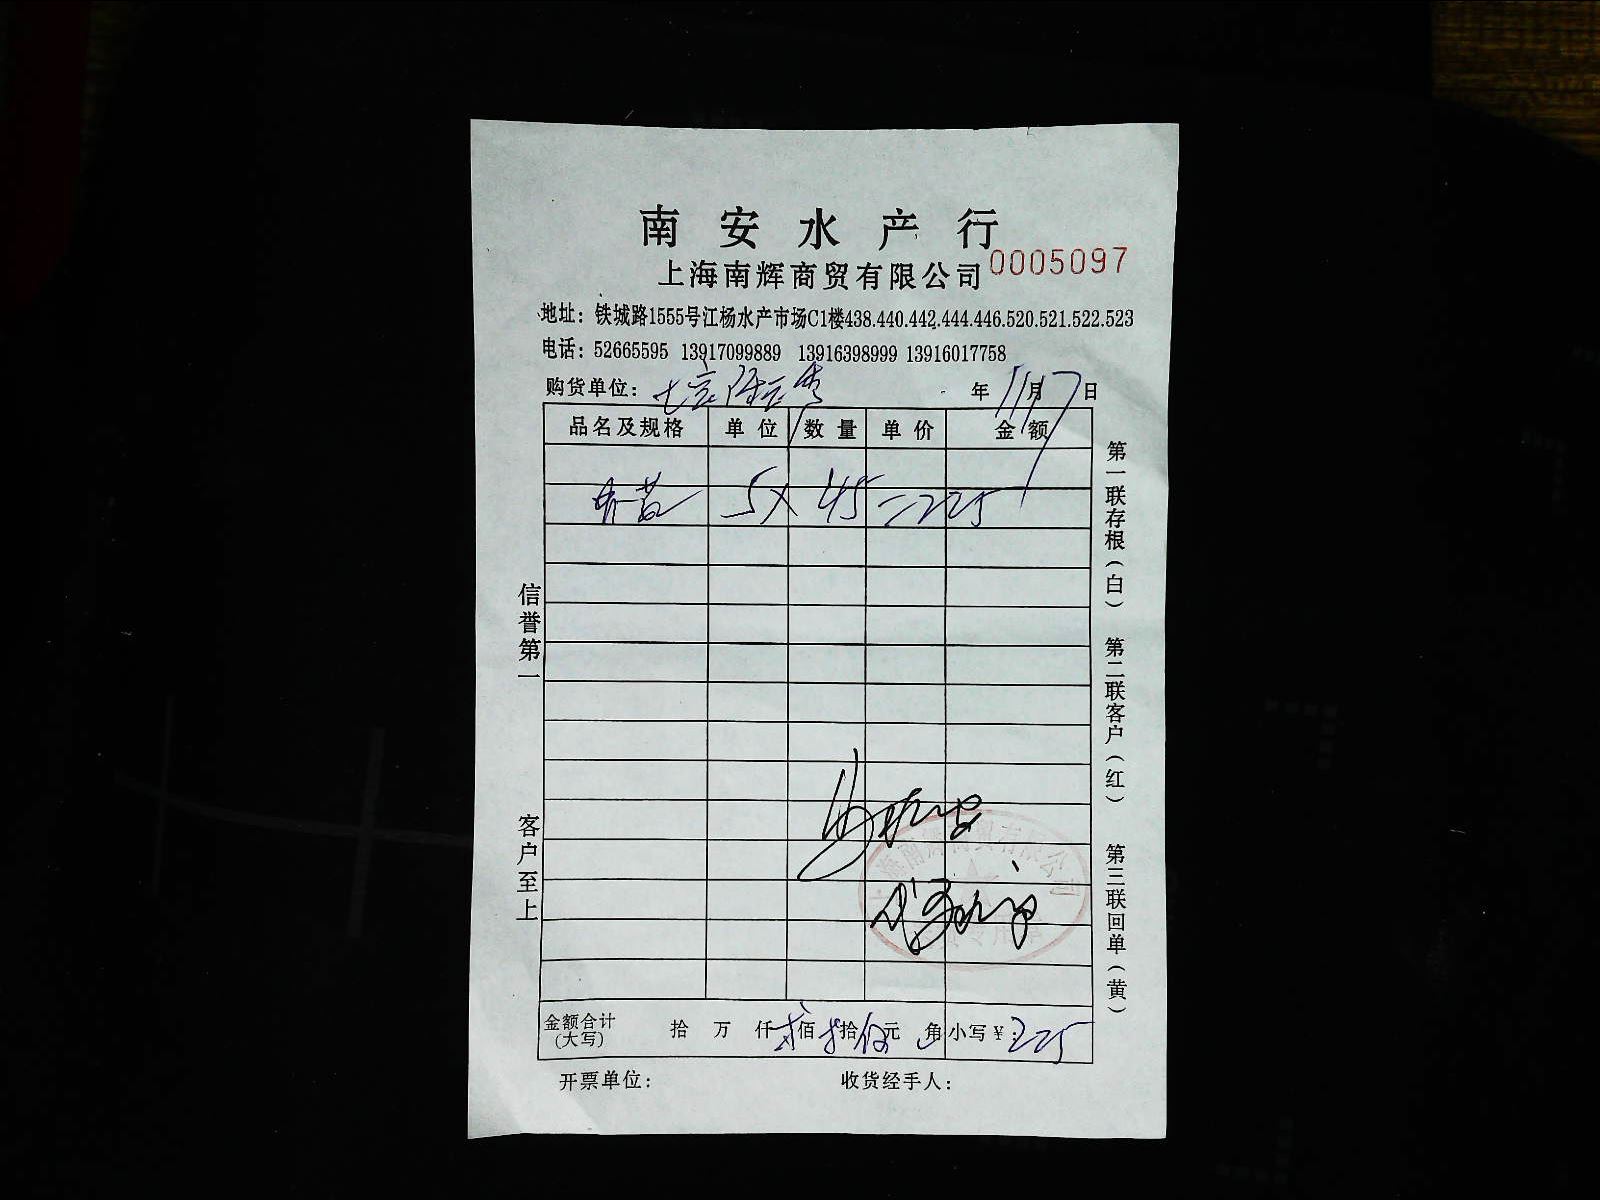 南安水产行
上海南辉商贸有限公司 0005097
地址：铁城路1555号江杨水产市场C1楼438.440.442.444.446.520.521.522.523
电话：52665595 13917099889 13916398999 13916017758
购货单位： 年 11月 17日
品名及规格 单位 数量 单价 金额
5× 45 =225
金额合计(大写) 拾 万 仟 贰佰 贰拾 伍元 角 小写￥：225
开票单位： 收货经手人：
信誉第一 客户至上
第一联存根(白) 第二联客户(红) 第三联回单(黄)